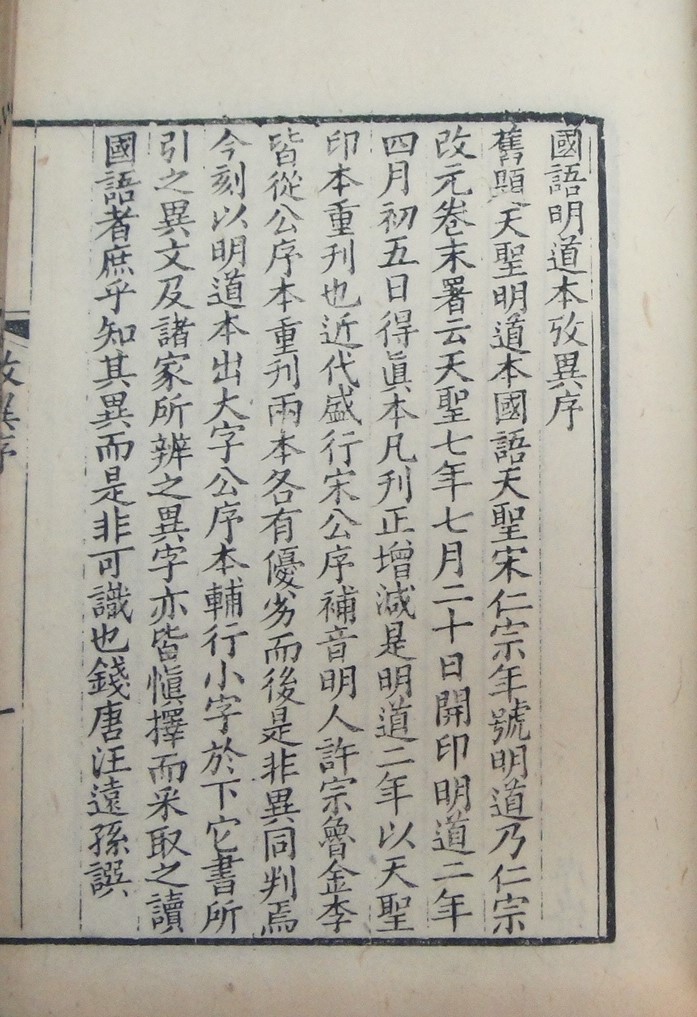 國語明道本攷異序
舊題天聖明道本國語天聖宋仁宗年號明道乃仁宗
改元卷末署云天聖七年七月二十日開印明道二年
四月初五日得眞本凡刊正增減是明道二年以天聖
印本重刊也近代盛行宋公序補音明人許宗魯金李
皆從公序本重刊兩本各有優劣而後是非異同判焉
今刻以明道本出大字公序本輔行小字於下它書所
引之異文及諸家所辨之異字亦皆愼擇而采取之讀
國語者庶乎知其異而是非可識也錢唐汪遠孫譔
攷異序
一